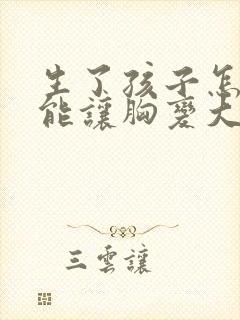 生了孩子怎
能讓胸變大
三雲讓